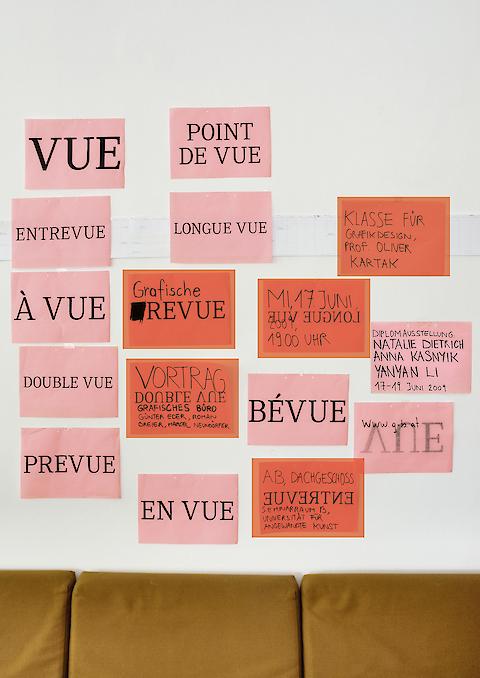 VUE
POINT
DE VUE
ENTREVUE
LONGUE VUE
KLASSE FÜR
GRAFIKDESIGN,
PROF. OLIVER
KARTAK
À VUE
Grafische
REVUE
MI, 17 JUNI
LONGUE VUE
2009,
19.00 UHR
DIPLOMAUSSTELLUNG
NATALIE DIETRICH
ANNA KASNYIK
YANYAN LI
17-19. JUNI 2009
DOUBLE VUE
VORTRAG
DOUBLE VUE
GRAFISCHES BÜRO
GÜNTER EDER, ROMAN
BREIER, MARCEL NEUNDÖRFER
BÉVUE
VUE
PREVUE
EN VUE
AB, DACHGESCHOSS
ENTREVUE
SEMINARRAUM B,
UNIVERSITÄT FÜR
ANGEWANDTE KUNST